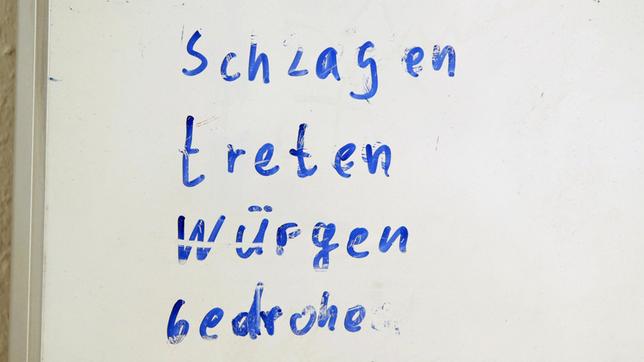 Schlagen
treten
Würgen
bedrohen